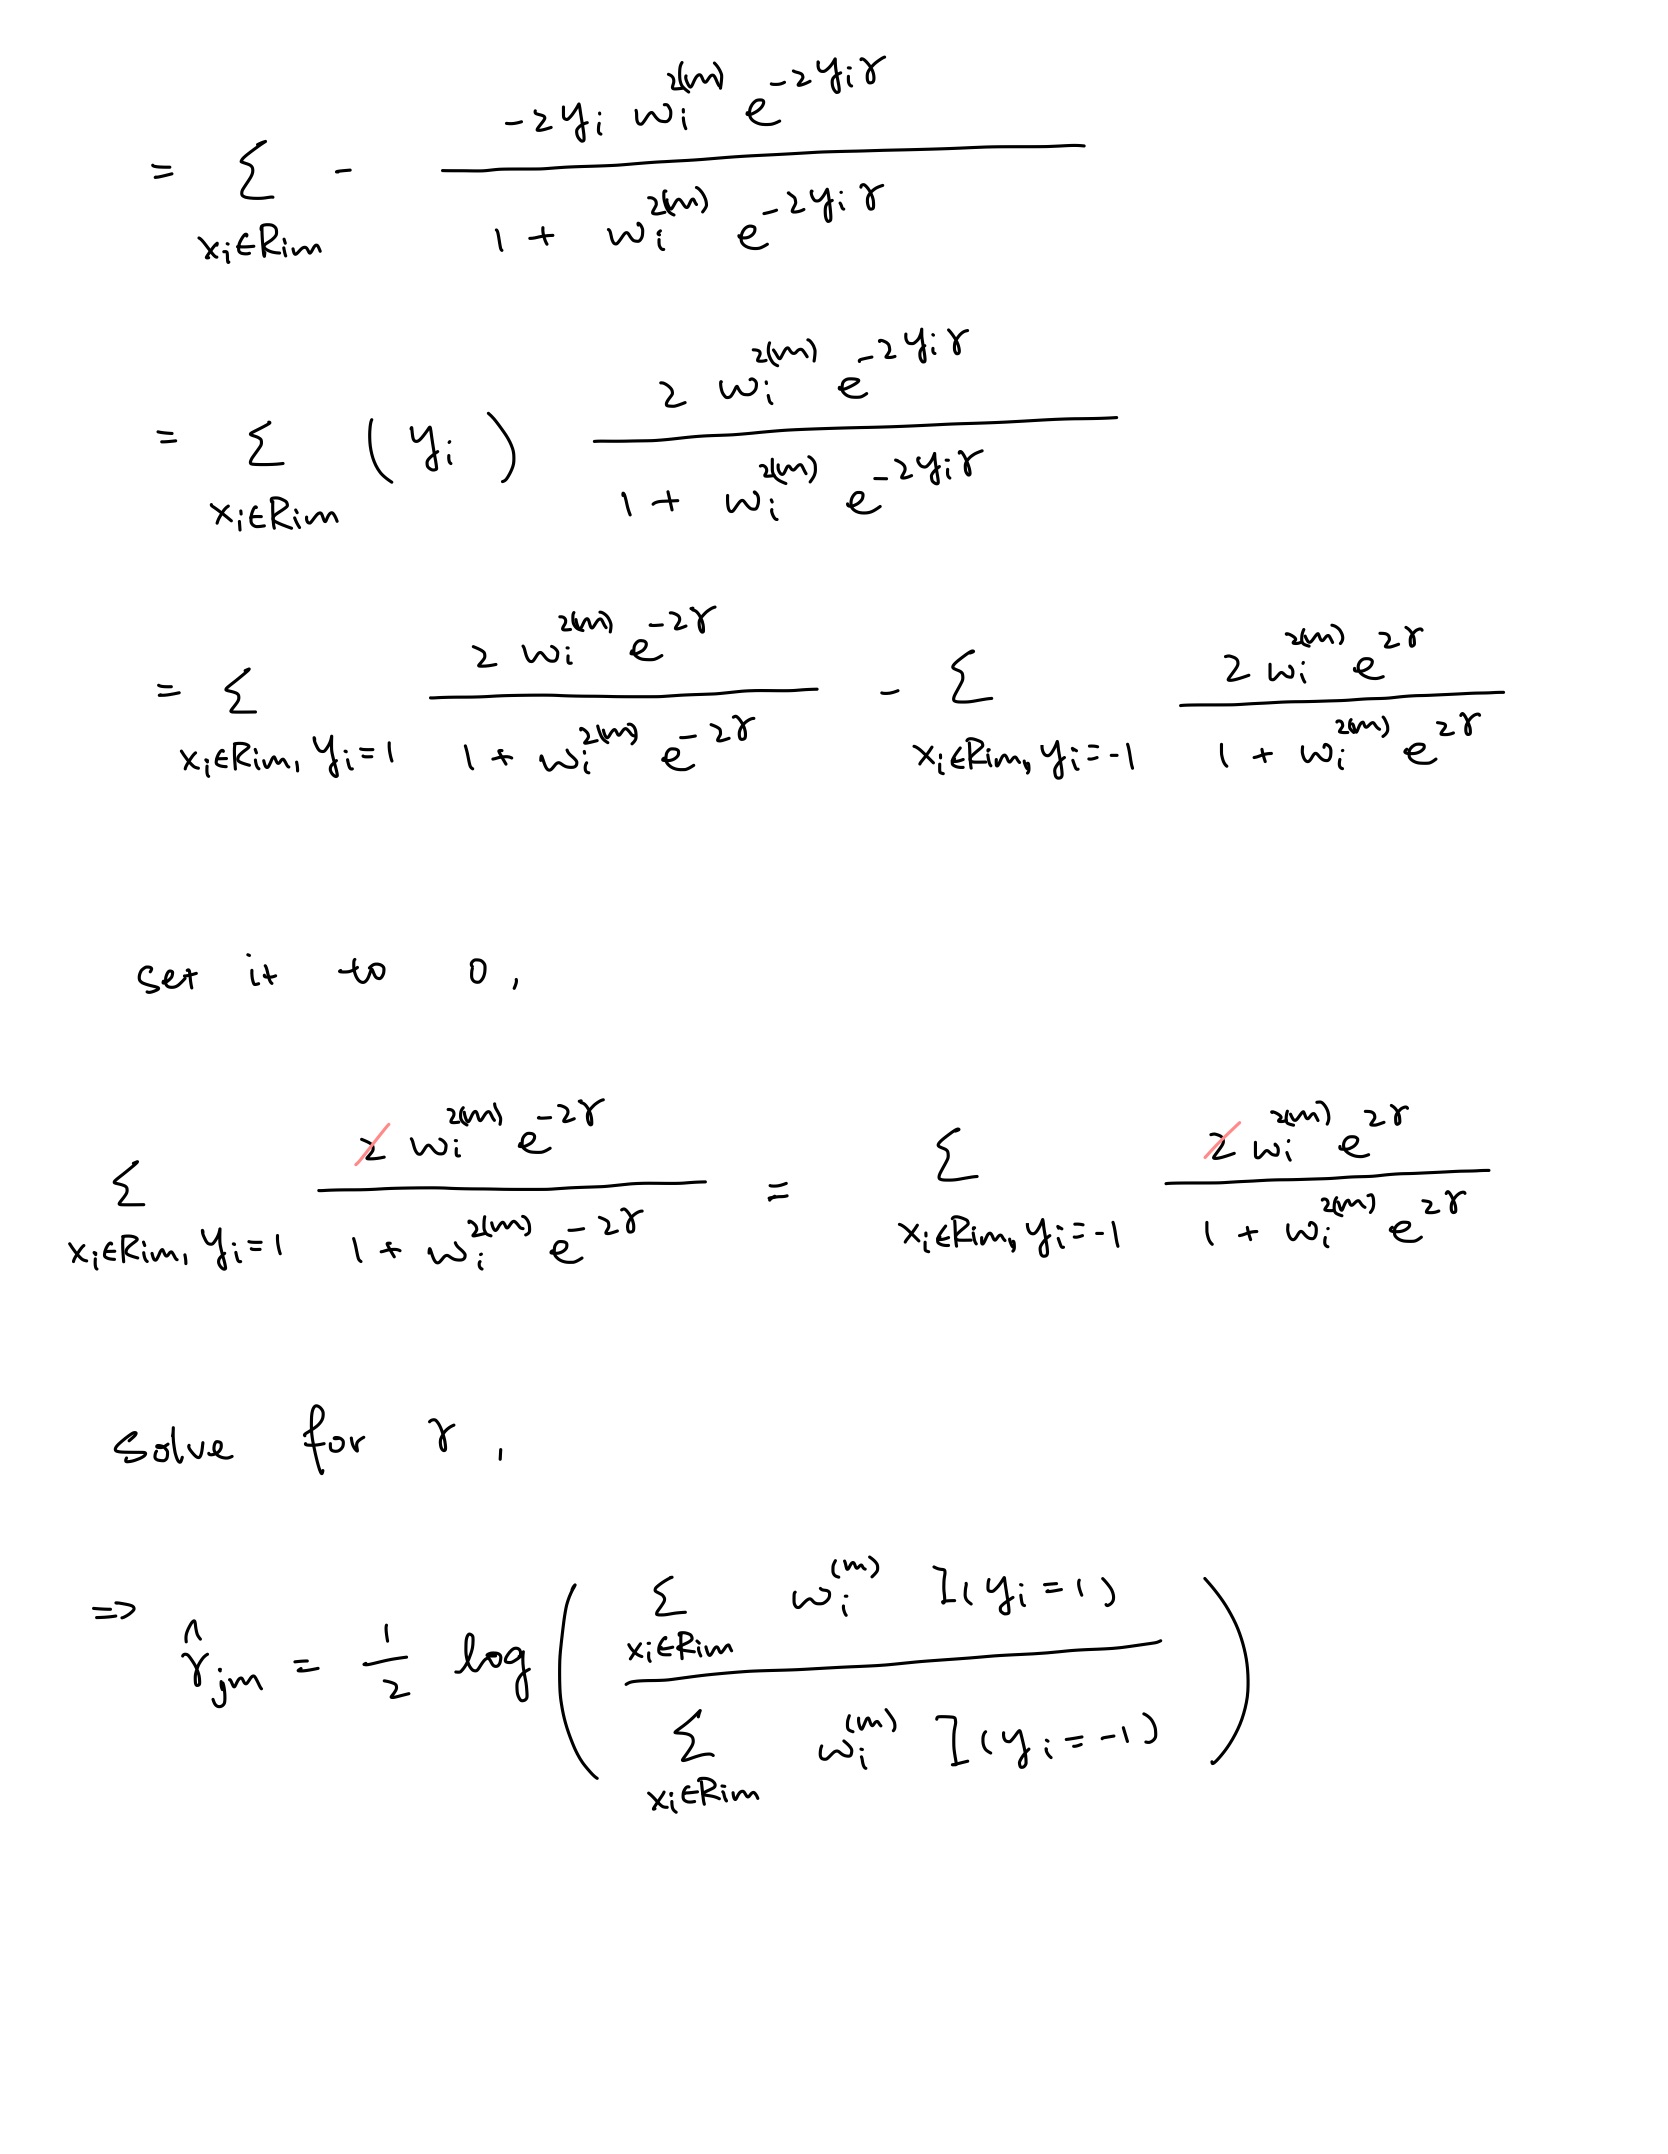 = Σ_{x_i∈R_{im}} - \frac{-2y_i w_i^{2(m)} e^{-2y_iγ}}{1 + w_i^{2(m)} e^{-2y_iγ}}
= Σ_{x_i∈R_{im}} (y_i) \frac{2 w_i^{2(m)} e^{-2y_iγ}}{1 + w_i^{2(m)} e^{-2y_iγ}}
= Σ_{x_i∈R_{im}, y_i=1} \frac{2 w_i^{2(m)} e^{-2γ}}{1 + w_i^{2(m)} e^{-2γ}} - Σ_{x_i∈R_{im}, y_i=-1} \frac{2 w_i^{2(m)} e^{2γ}}{1 + w_i^{2(m)} e^{2γ}}
set it to 0,
Σ_{x_i∈R_{im}, y_i=1} \frac{2 w_i^{2(m)} e^{-2γ}}{1 + w_i^{2(m)} e^{-2γ}} = Σ_{x_i∈R_{im}, y_i=-1} \frac{2 w_i^{2(m)} e^{2γ}}{1 + w_i^{2(m)} e^{2γ}}
solve for γ,
=> \hat{γ}_{jm} = \frac{1}{2} log ( \frac{Σ_{x_i∈R_{im}} w_i^{(m)} I(y_i=1)}{Σ_{x_i∈R_{im}} w_i^{(m)} I(y_i=-1)} )